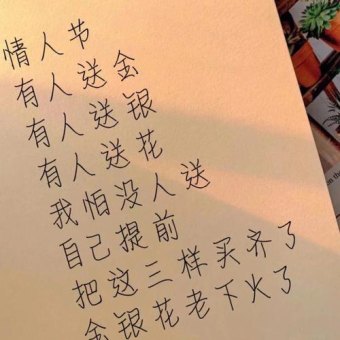 情人节
有人送金
有人送银
有人送花
我怕没人送
自己提前
把这三样买齐了
金银花老下火了